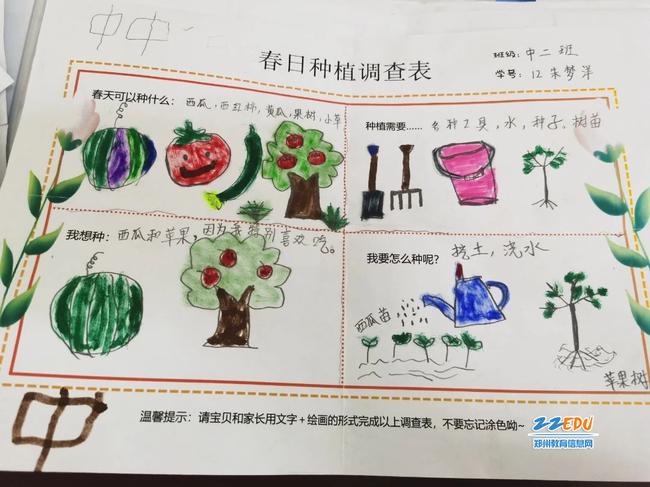 中中
春日种植调查表
班级：中二班
学号：12朱梦洋
春天可以种什么：西瓜，西红柿，黄瓜，果树，小草
种植需要…… 各种工具，水，种子。树苗
我想种：西瓜和苹果，因为我特别喜欢吃。
我要怎么种呢？挖土，浇水
西瓜苗
苹果树
中
温馨提示：请宝贝和家长用文字+绘画的形式完成以上调查表，不要忘记涂色呦~
ZZEDU
郑州教育信息网